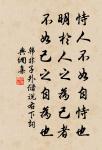 恃人不如自恃也
明於人之為己者
不如己之自為也
韓非子外儲說右下詞
典網集